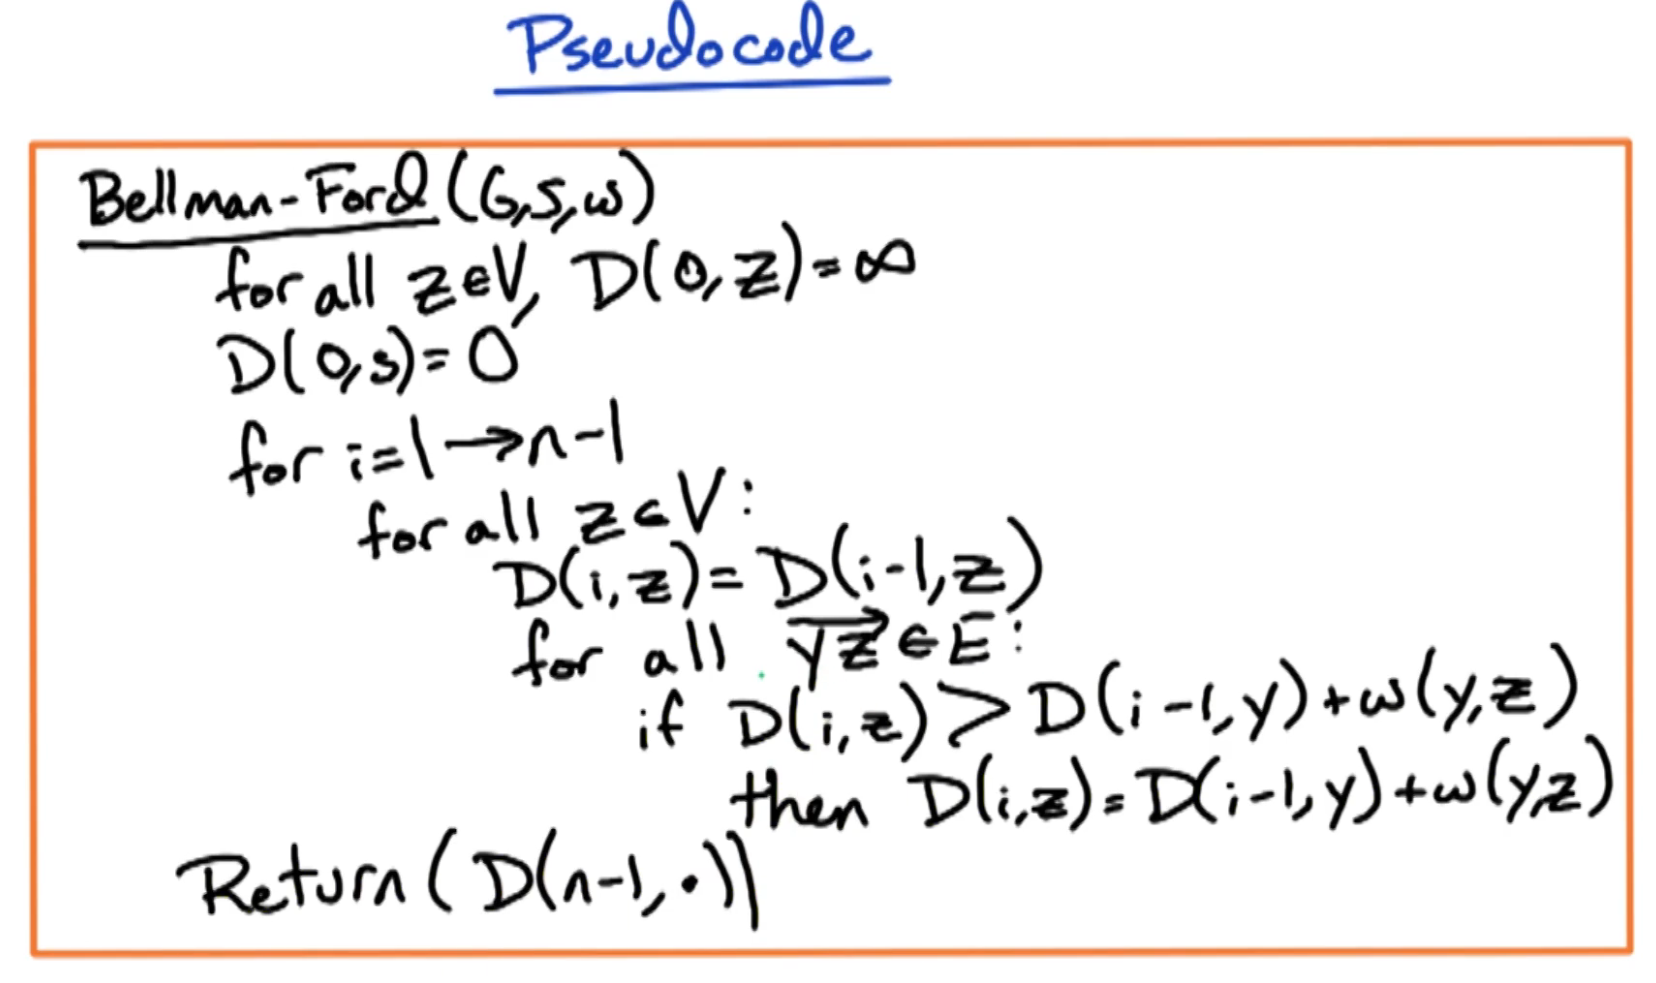 Pseudocode
Bellman-Ford (G,s,w)
for all z∈V, D(0,z)=∞
D(0,s)=0
for i=1→n-1
for all z∈V:
D(i,z)=D(i-1,z)
for all \overrightarrow{yz}∈E:
if D(i,z)>D(i-1,y)+w(y,z)
then D(i,z)=D(i-1,y)+w(y,z)
Return(D(n-1,·))